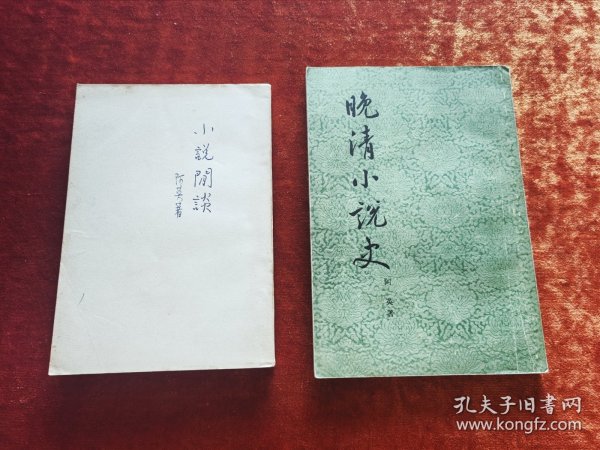 小說閒談
阿英著
晚清小说史
阿英著
孔夫子旧书网
www.kongfz.com